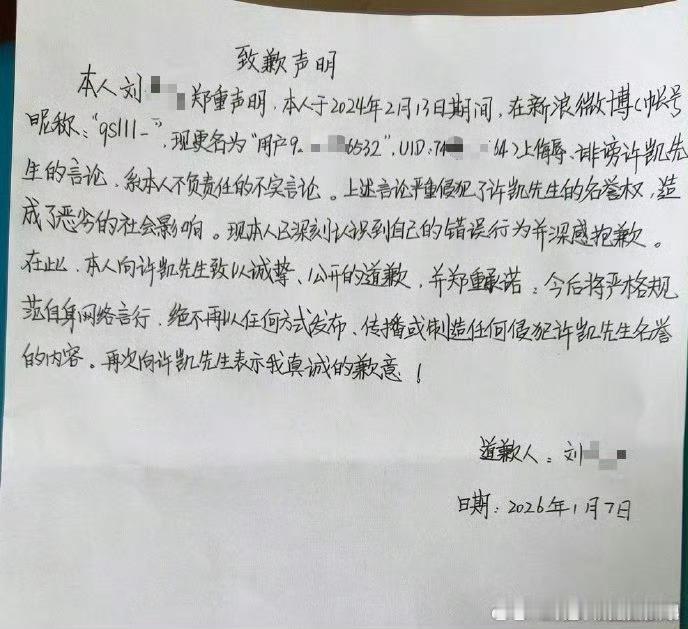 致歉声明
本人刘郑重声明,本人于2024年2月13日期间,在新浪微博(帐号
昵称:"qs111-",现更名为"用户9 6532",UID:74 64)上侮辱、诽谤许凯先
生的言论,系本人不负责任的不实言论。上述言论严重侵犯了许凯先生的名誉权,造
成了恶劣的社会影响。现本人已深刻认识到自己的错误行为并深感抱歉。
在此,本人向许凯先生致以诚挚、公开的道歉,并郑重承诺:今后将严格规
范自身网络言行,绝不再以任何方式发布、传播或制造任何侵犯许凯先生名誉
的内容。再次向许凯先生表示我真诚的歉意!
道歉人:刘
日期:2026年1月7日